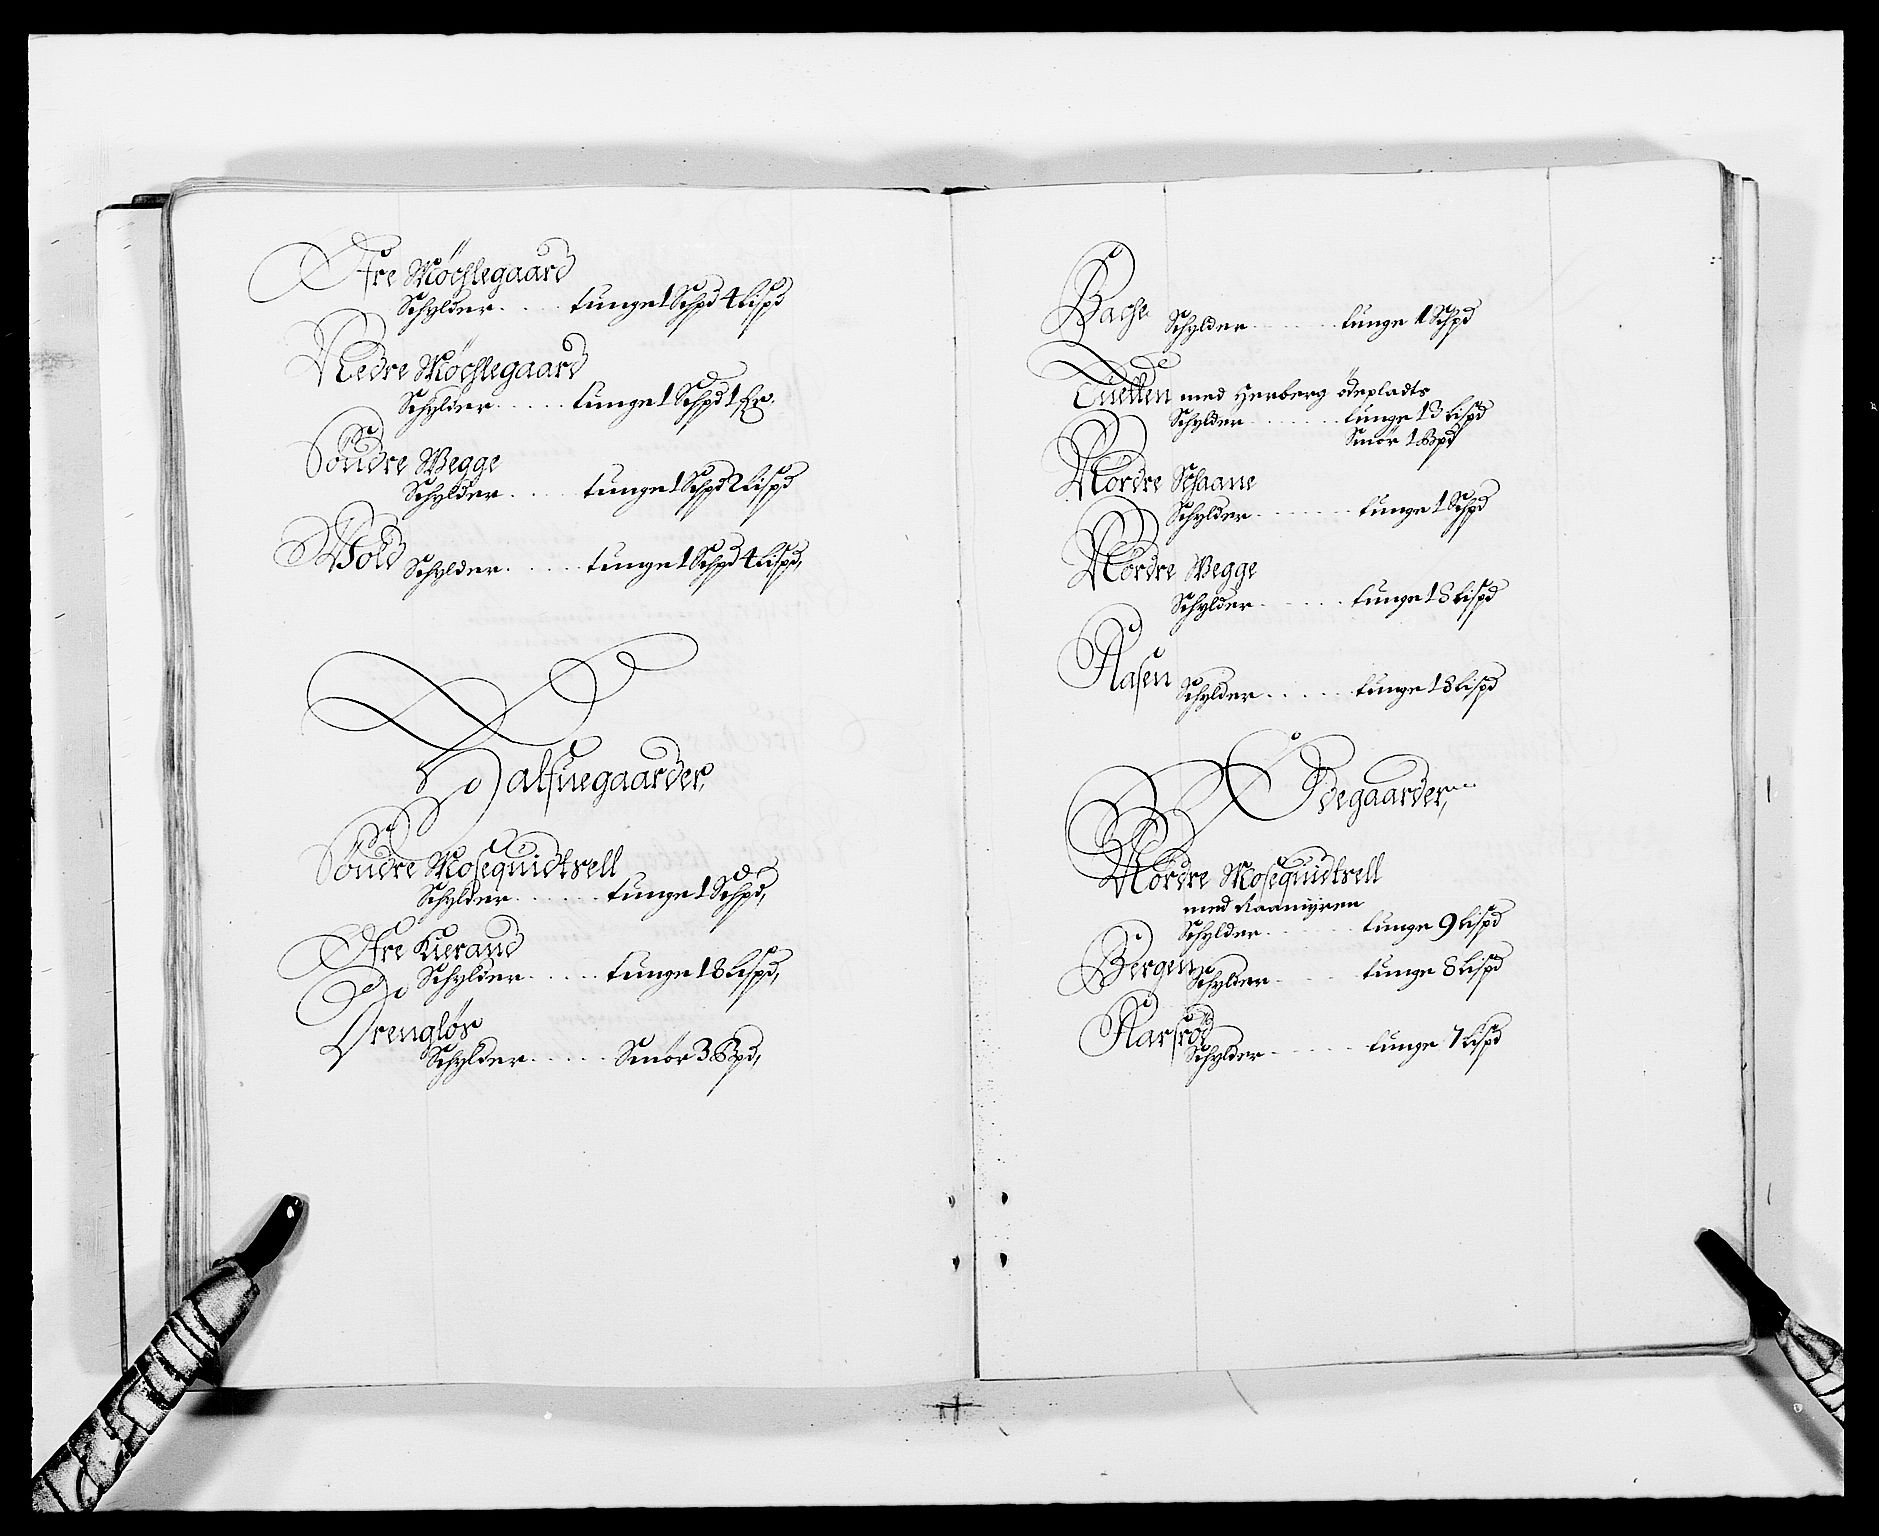 Øfre Møchlegaard
Schylder..... tunge 1 Schpd 4 Lispd
Nedre Møchlegaard
Schylder..... tunge 1 Schpd 1 fr.
Søndre Wegge
Schylder..... tunge 1 Schpd 2 Lispd
Wold Schylder..... tunge 1 Schpd 4 Lispd,
Halfuegaarder,
Søndre Mosequidtsell
Schylder...... tunge 1 Schpd,
Øfre Kierand
Schylder..... tunge 18 Lispd,
Drengløs
Schylder..... Smör 3 Bpd,
Bache Schylder...... tunge 1 Schpd
Tuetten med Herberg ödepladts
Schylder...... tunge 13 Lispd
Smör 1 Bpd
Nordre Schaane
Schylder...... tunge 1 Schpd
Nordre Wegge
Schylder...... tunge 18 Lispd
Aasen Schylder..... tunge 18 Lispd
Ødegaarder,
Nordre Mosequidtsell
med Raamyren
Schylder...... tunge 9 Lispd
Bergen Schylder...... tunge 8 Lispd
Aarsrød
Schylder...... tunge 7 Lispd